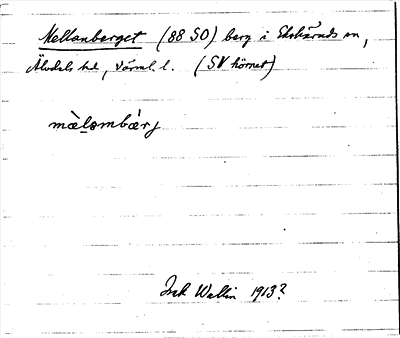 Mellanberget (88 SO) berg i Ekshärads sn,
Älvdals hd, Värml. l. (SV hörnet)
màlombǽrj
Wallin 1913?